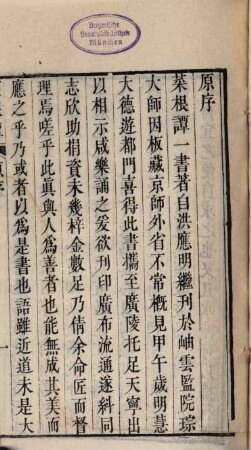 Bayerische
Staatsbibliothek
München
原序
菜根譚一書著自洪應明繼刊於岫雲監院琮
大師因板藏京師外省不常概見甲午歲明慧
大德遊都門喜得此書攜至廣陵托足天寧出
以相示咸樂誦之爰欲刊印廣布流通遂糾同
志欣助捐資未幾梓金數足乃倩余命匠而督
理焉嗟乎此真與人為善者也能無成其美而
應之乎乃或者以為是書也語雖近道未是大
原序
一